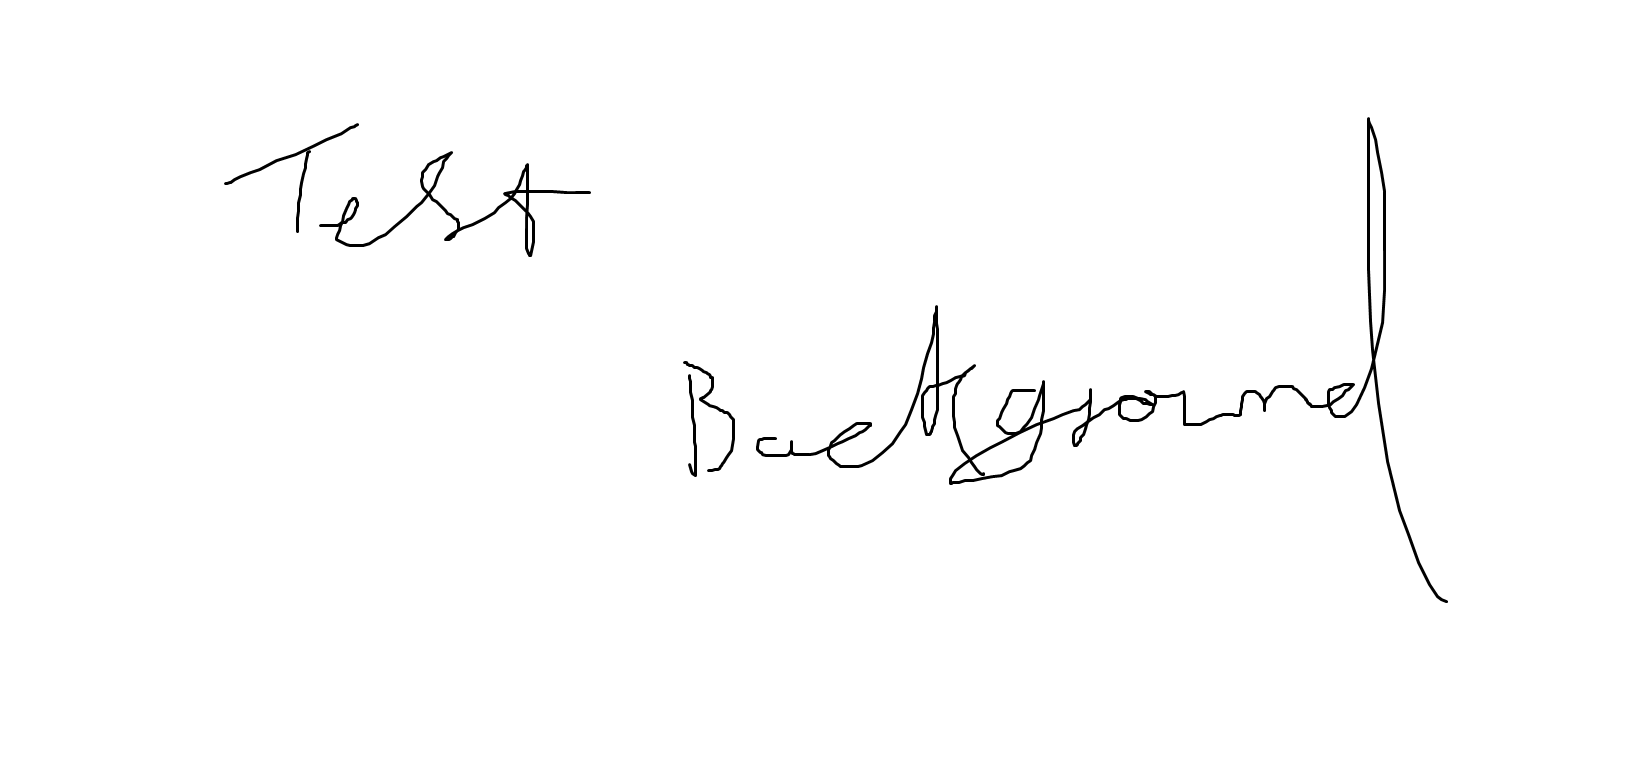 Test
Background